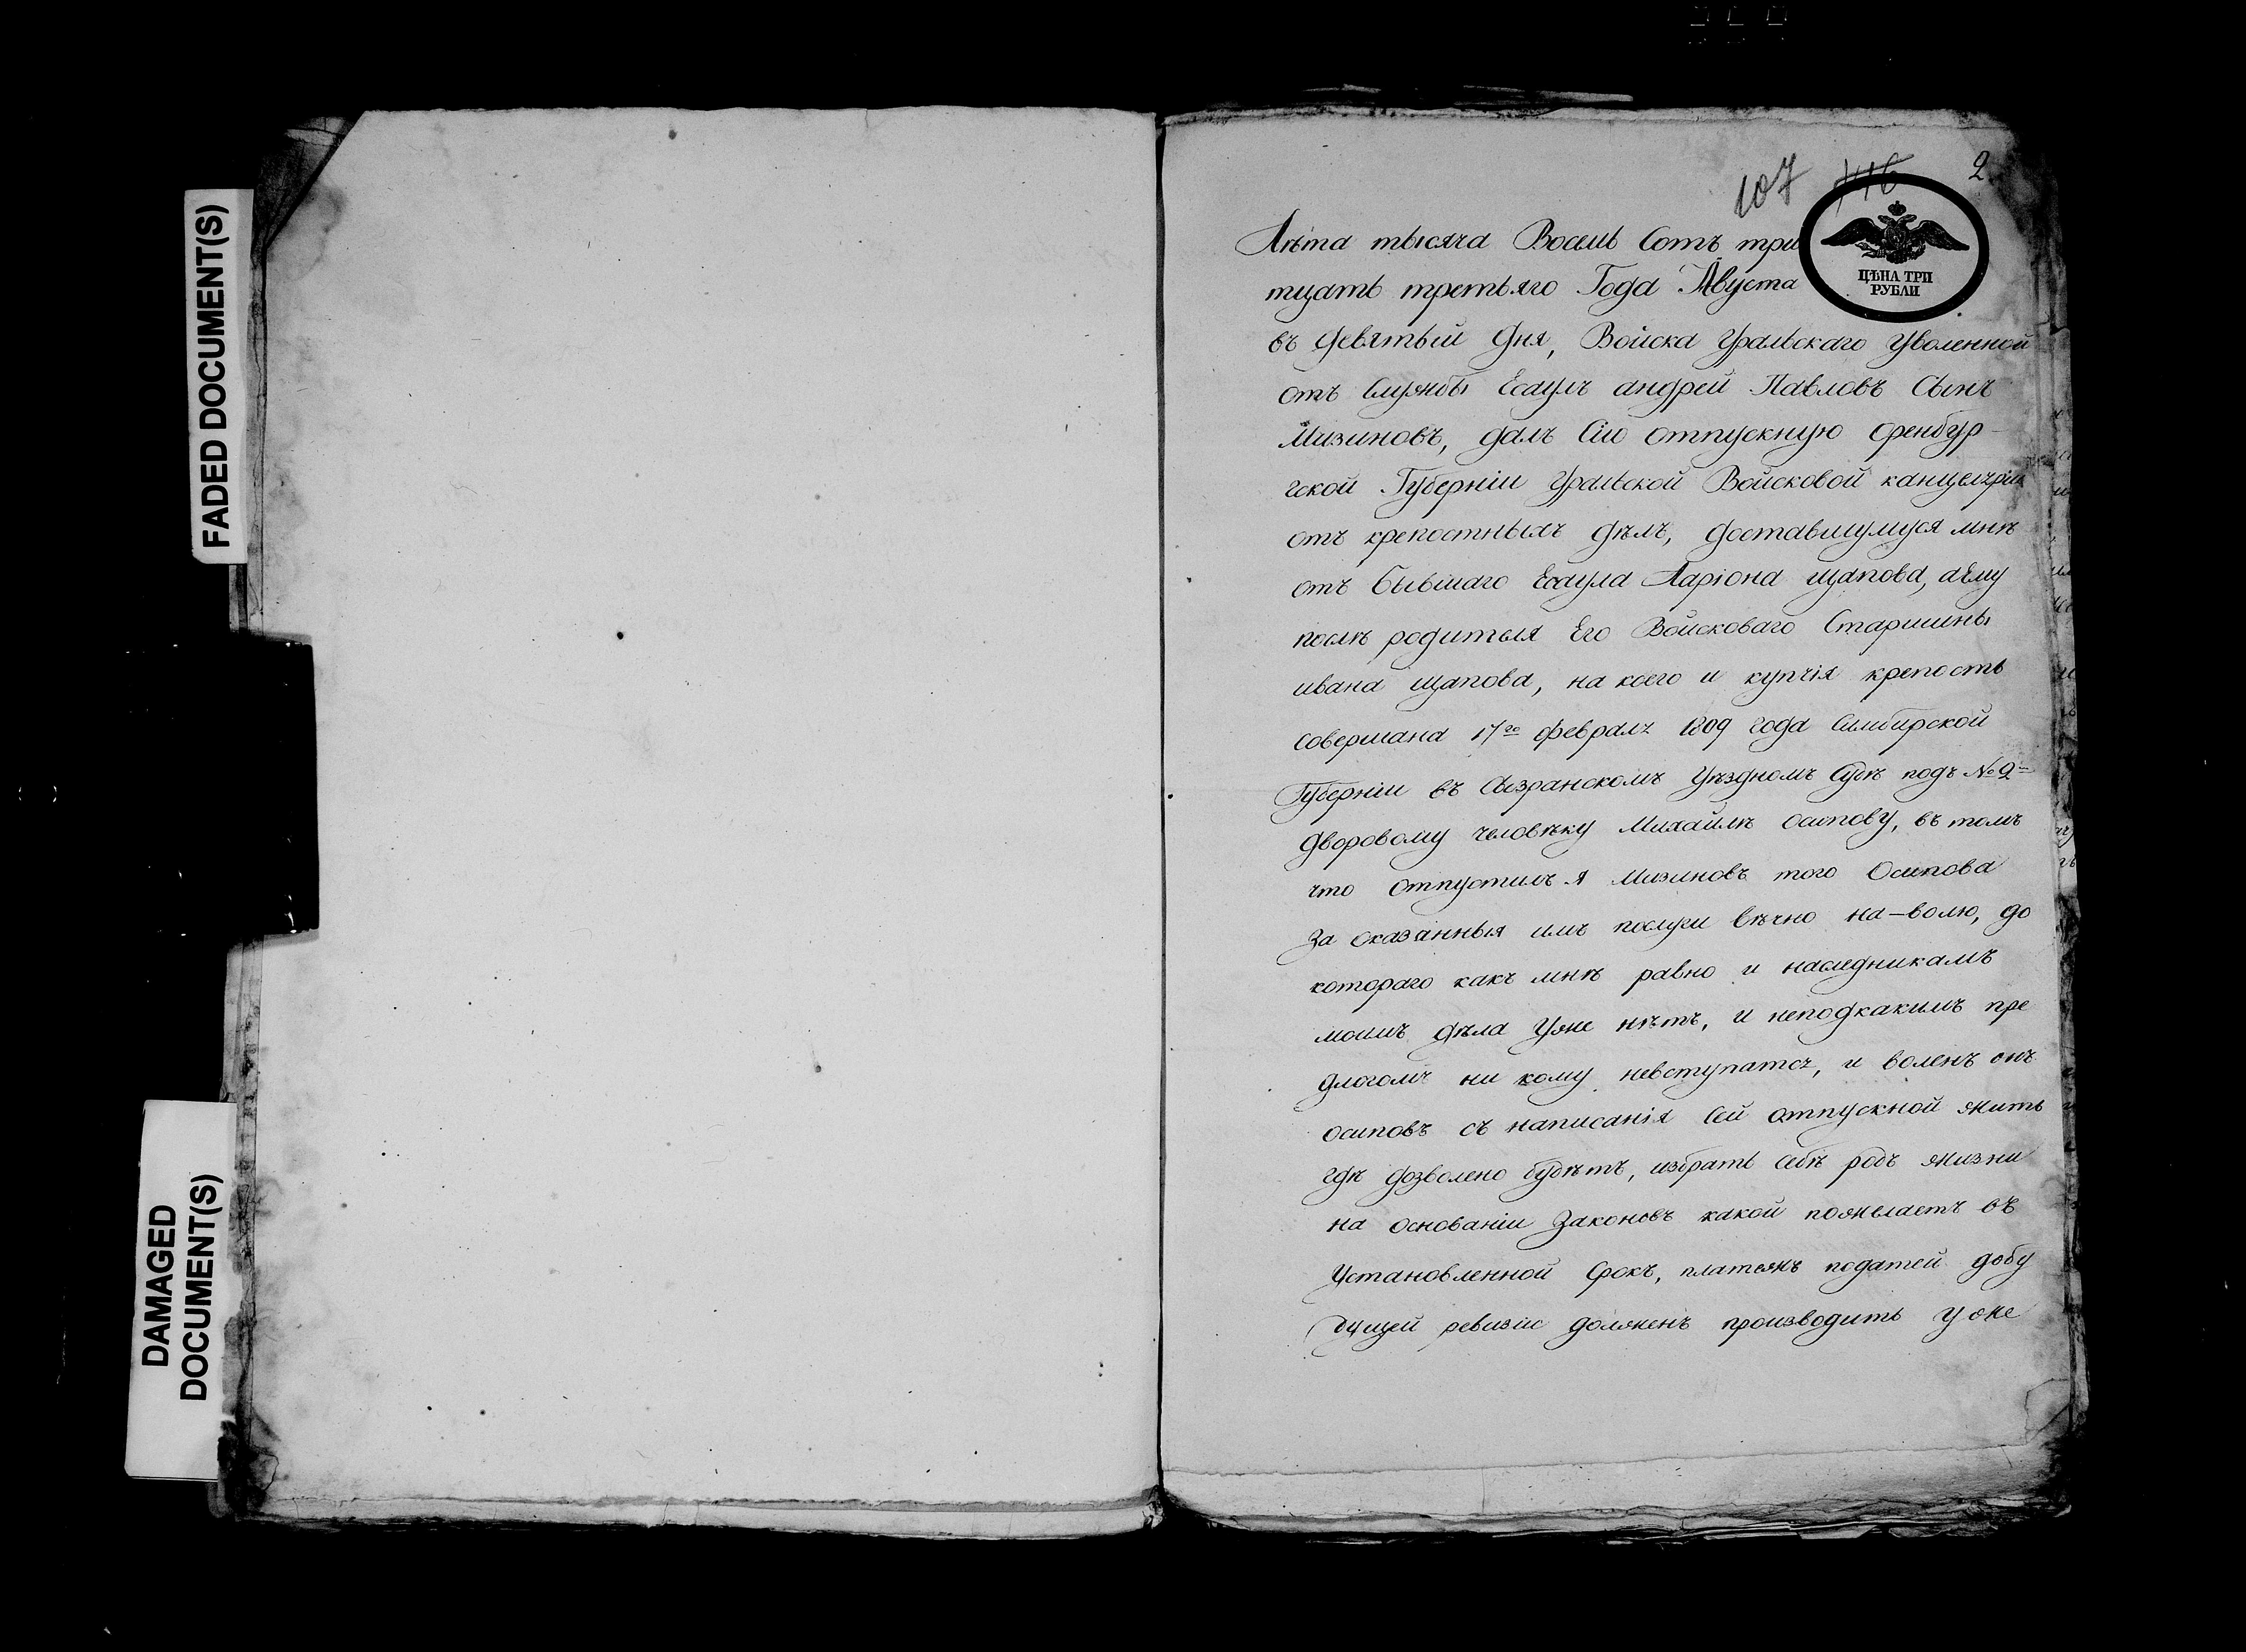 FADED DOCUMENT(S)
DAMAGED
DOCUMENT(S)
107 116 2
ЦѢНА ТРИ
РУБЛИ
Лѣта тысяча Восемь Сотъ три
тцать третьяго Года Августа
въ девятый дня, Войска Уральскаго Уволенной
отъ Службы Есаулъ андрей Павловъ Сынъ
Мизиновъ, далъ Сію отпускную оренбур-
гской Губерніи Уральской Войсковой канцеляріи
отъ крепостныхъ дѣлъ, доставшумуся мнѣ
отъ бывшаго Есаула Ларіона щапова, аЕму
послѣ родителя Его Войсковаго Старшины
ивана щапова, на коего и купчія крепость
Совершана 17го февраля 1809 года Симбирской
Губерніи въ Сызранскомъ Уѣздномъ Судѣ подъ №9
дворовому человѣку Михайлѣ осипову, въ томъ
что отпустилъ я Мизиновъ того Осипова
За оказанныя имъ послуги вѣчно на-волю, до
котораго какъ мнѣ равно и наследникамъ
моимъ дѣла Уже нѣтъ, и неподкакимъ пре
длогомъ ни кому невступатся, и воленъ онъ
осиповъ съ написанія Сей отпускной жить
гдѣ дозволено будѣтъ, избрать Себѣ родъ жизни
на основаніи Законовъ какой пожелаетъ въ
Установленной Срокъ, платежъ податей добу
дущей ревизіи долженъ производить уже